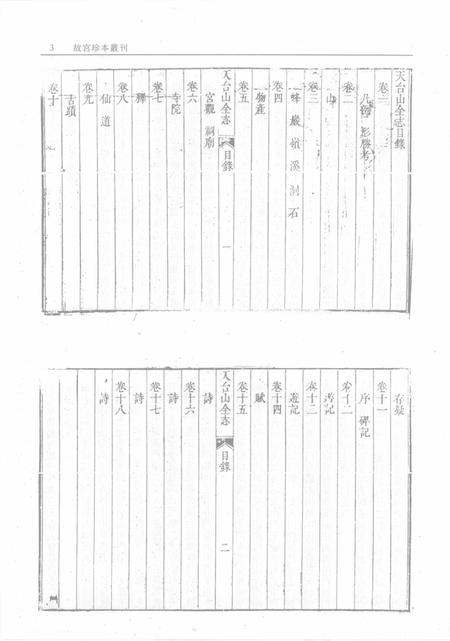 3 故宮珍本叢刊
天台山全志目錄
卷一
形勝考
卷二
山
卷三
峰 巖 嶺 溪 洞 石
卷四
物產
卷五
天台山全志 目錄 一
宮觀 祠廟
卷六
寺院
卷七
釋
卷八
仙道
卷九
古蹟
卷十
存疑
卷十一
序 碑記
卷十二
卷十三
遊記
卷十四
賦
卷十五
天台山全志 目錄 二
詩
卷十六
詩
卷十七
詩
卷十八
詩